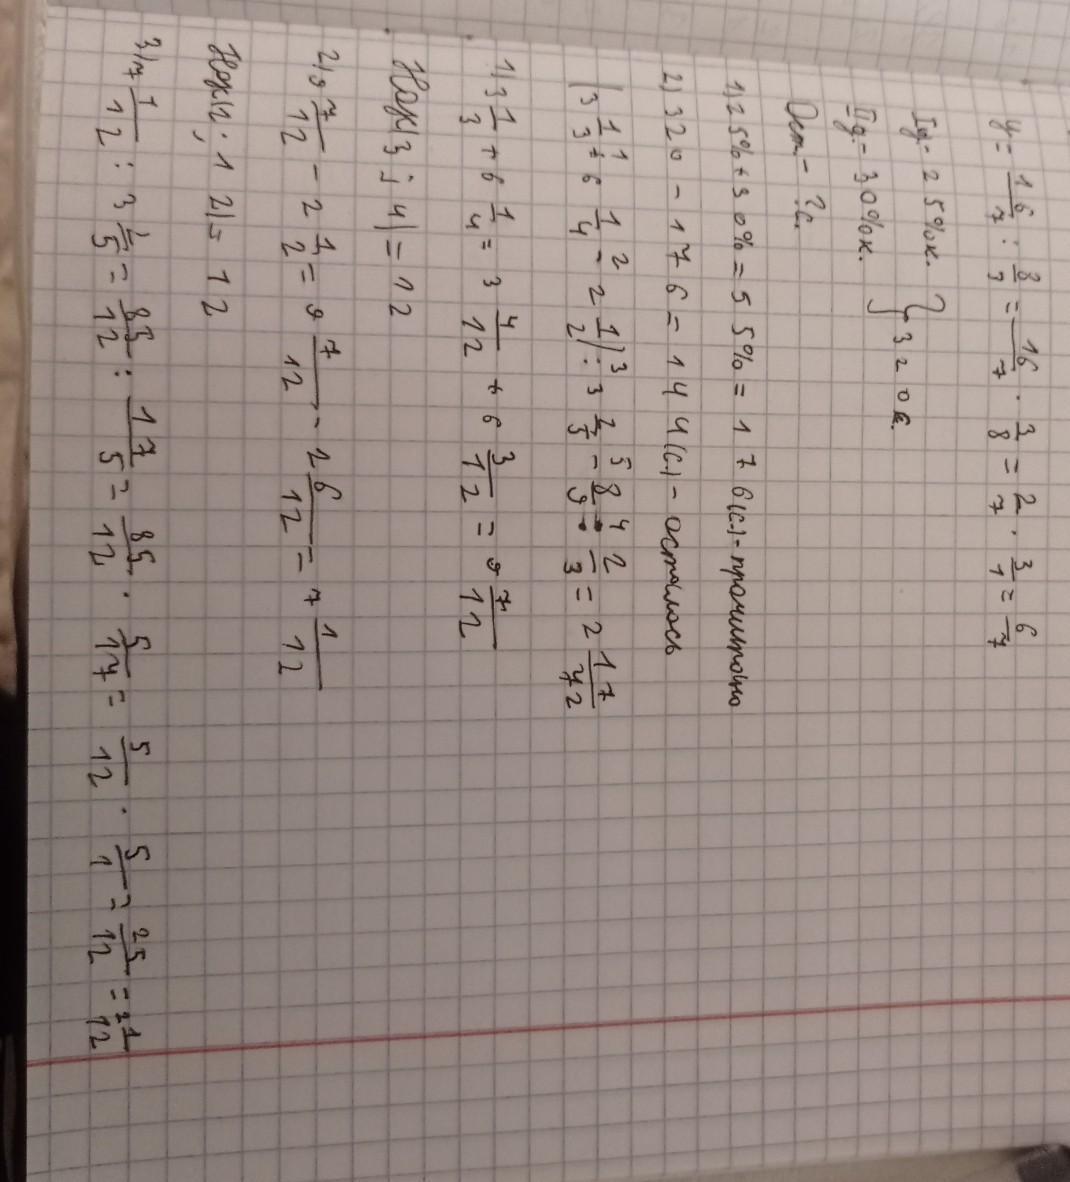 y = 16/7 : 8/3 = 16/7 · 3/8 = 2/7 · 3/1 = 6/7
I д. - 25% к. } 320 с.
II д. - 30% к.
Ост. - ? с.
1) 25% + 30% = 55% = 176 (с.) - прочитано
2) 320 - 176 = 144 (с.) - осталось
(3 1/3 + 6 1/4 - 2 1/2) : 3 2/5 - 8/9 · 2/3 = 2 17/42
1) 3 1/3 + 6 1/4 = 3 4/12 + 6 3/12 = 9 7/12
НОК (3; 4) = 12
2) 9 7/12 - 2 1/2 = 9 7/12 - 2 6/12 = 7 1/12
НОК (2; 12) = 12
3) 7 1/12 : 3 2/5 = 85/12 : 17/5 = 85/12 · 5/17 = 5/12 · 5/1 = 25/12 = 2 1/12